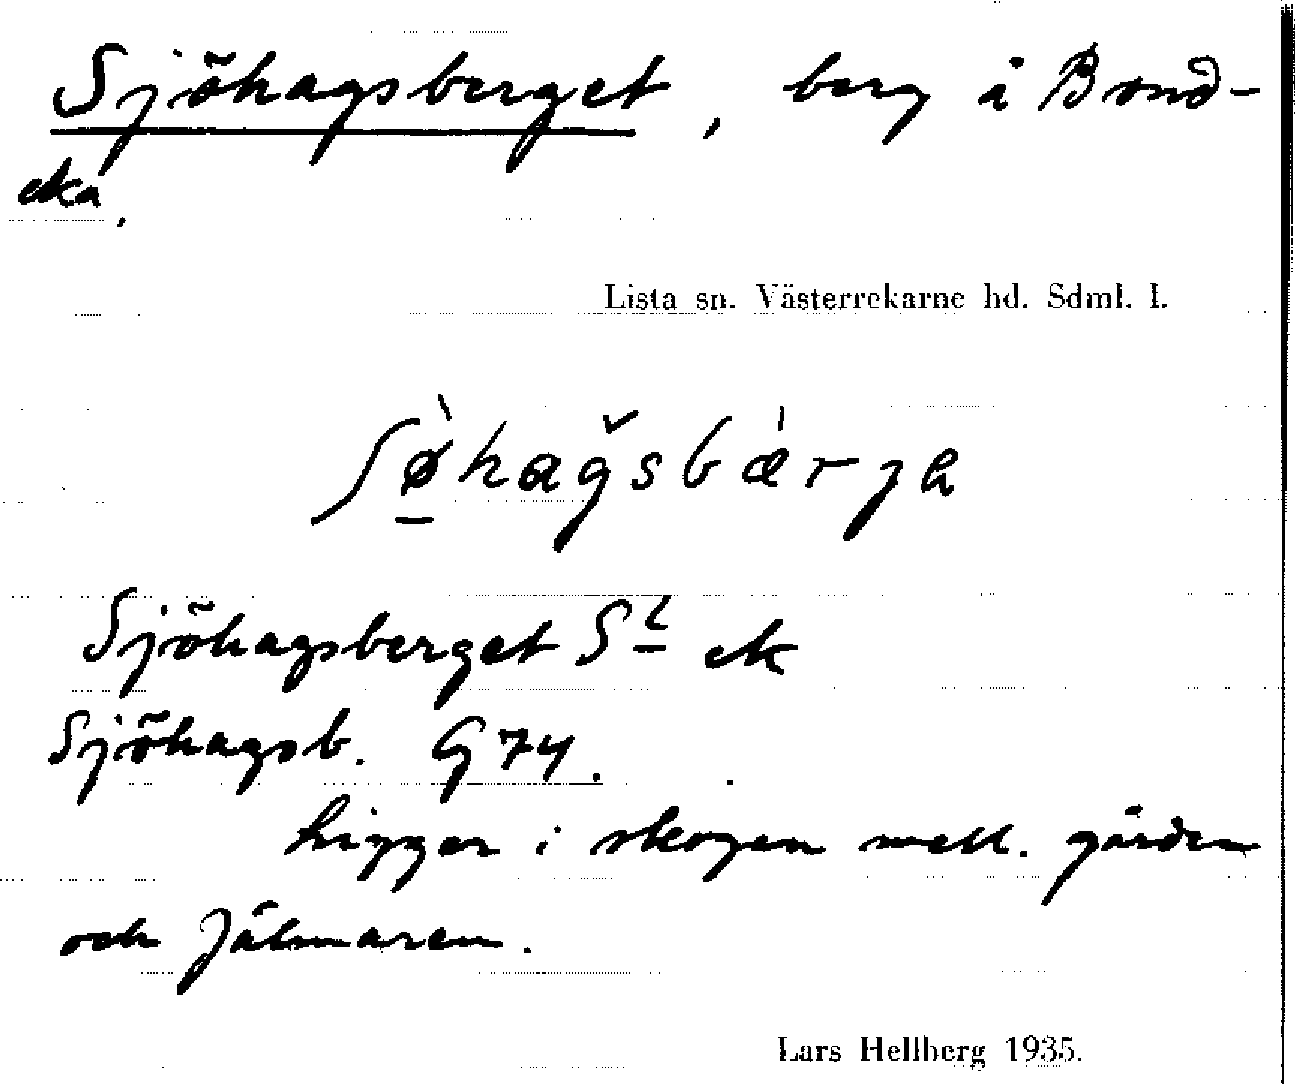 Sjöhagsberget, berg å Bond-
eka.
Lista sn. Västerrekarne hd. Sdml. l.
Sjöhagsberget ek
Sjöhagsb. G 74.
Ligger i skogen mell. gården
och Jälmaren.
Lars Hellberg 1935.